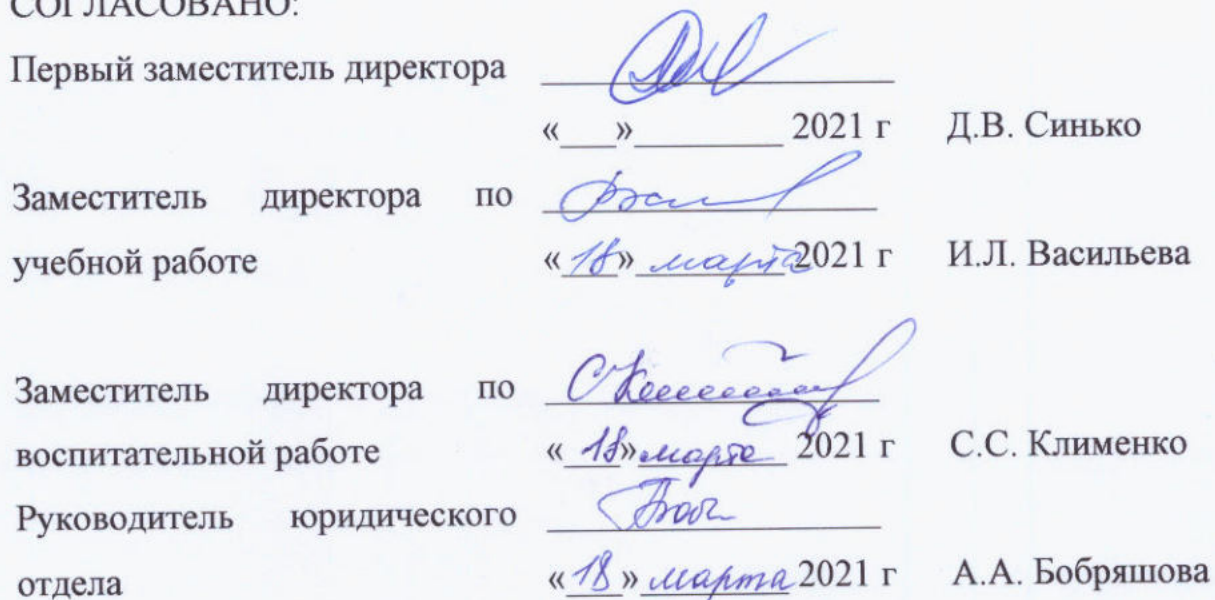 СОГЛАСОВАНО:
Первый заместитель директора
«___»________ 2021 г Д.В. Синько
Заместитель директора по
учебной работе «18» марта 2021 г И.Л. Васильева
Заместитель директора по
воспитательной работе «18» марта 2021 г С.С. Клименко
Руководитель юридического
отдела «18» марта 2021 г А.А. Бобряшова